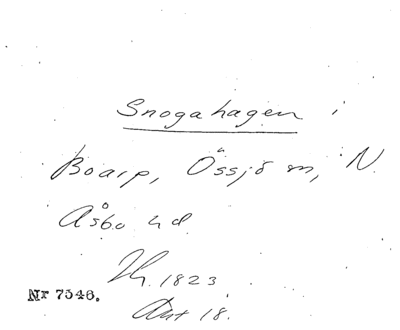 Snogahagen i
Boarp, Össjö sn, N.
Åsbo hd.
Th. 1823
Akt 18.
Nr 7546.